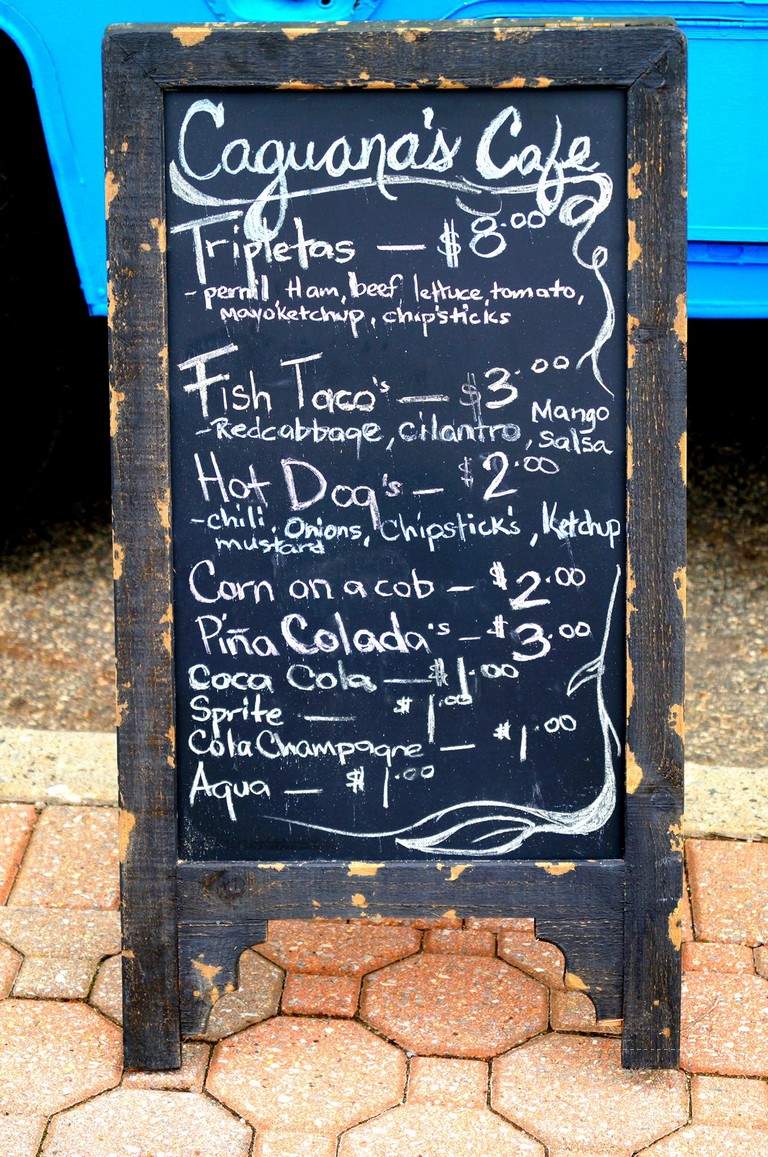 Caguana's Cafe
Tripletas — $8.00
- pernil Ham, beef lettuce, tomato,
mayoketchup, chipsticks
Fish Taco's — $3.00
- Redcabbage, cilantro, Mango
salsa
Hot Dog's — $2.00
- chili, Onions, Chipstick's, Ketchup
mustard
Corn on a cob — $2.00
Piña Colada's — $3.00
Coca Cola — $1.00
Sprite — $1.00
Cola Champagne — $1.00
Aqua — $1.00